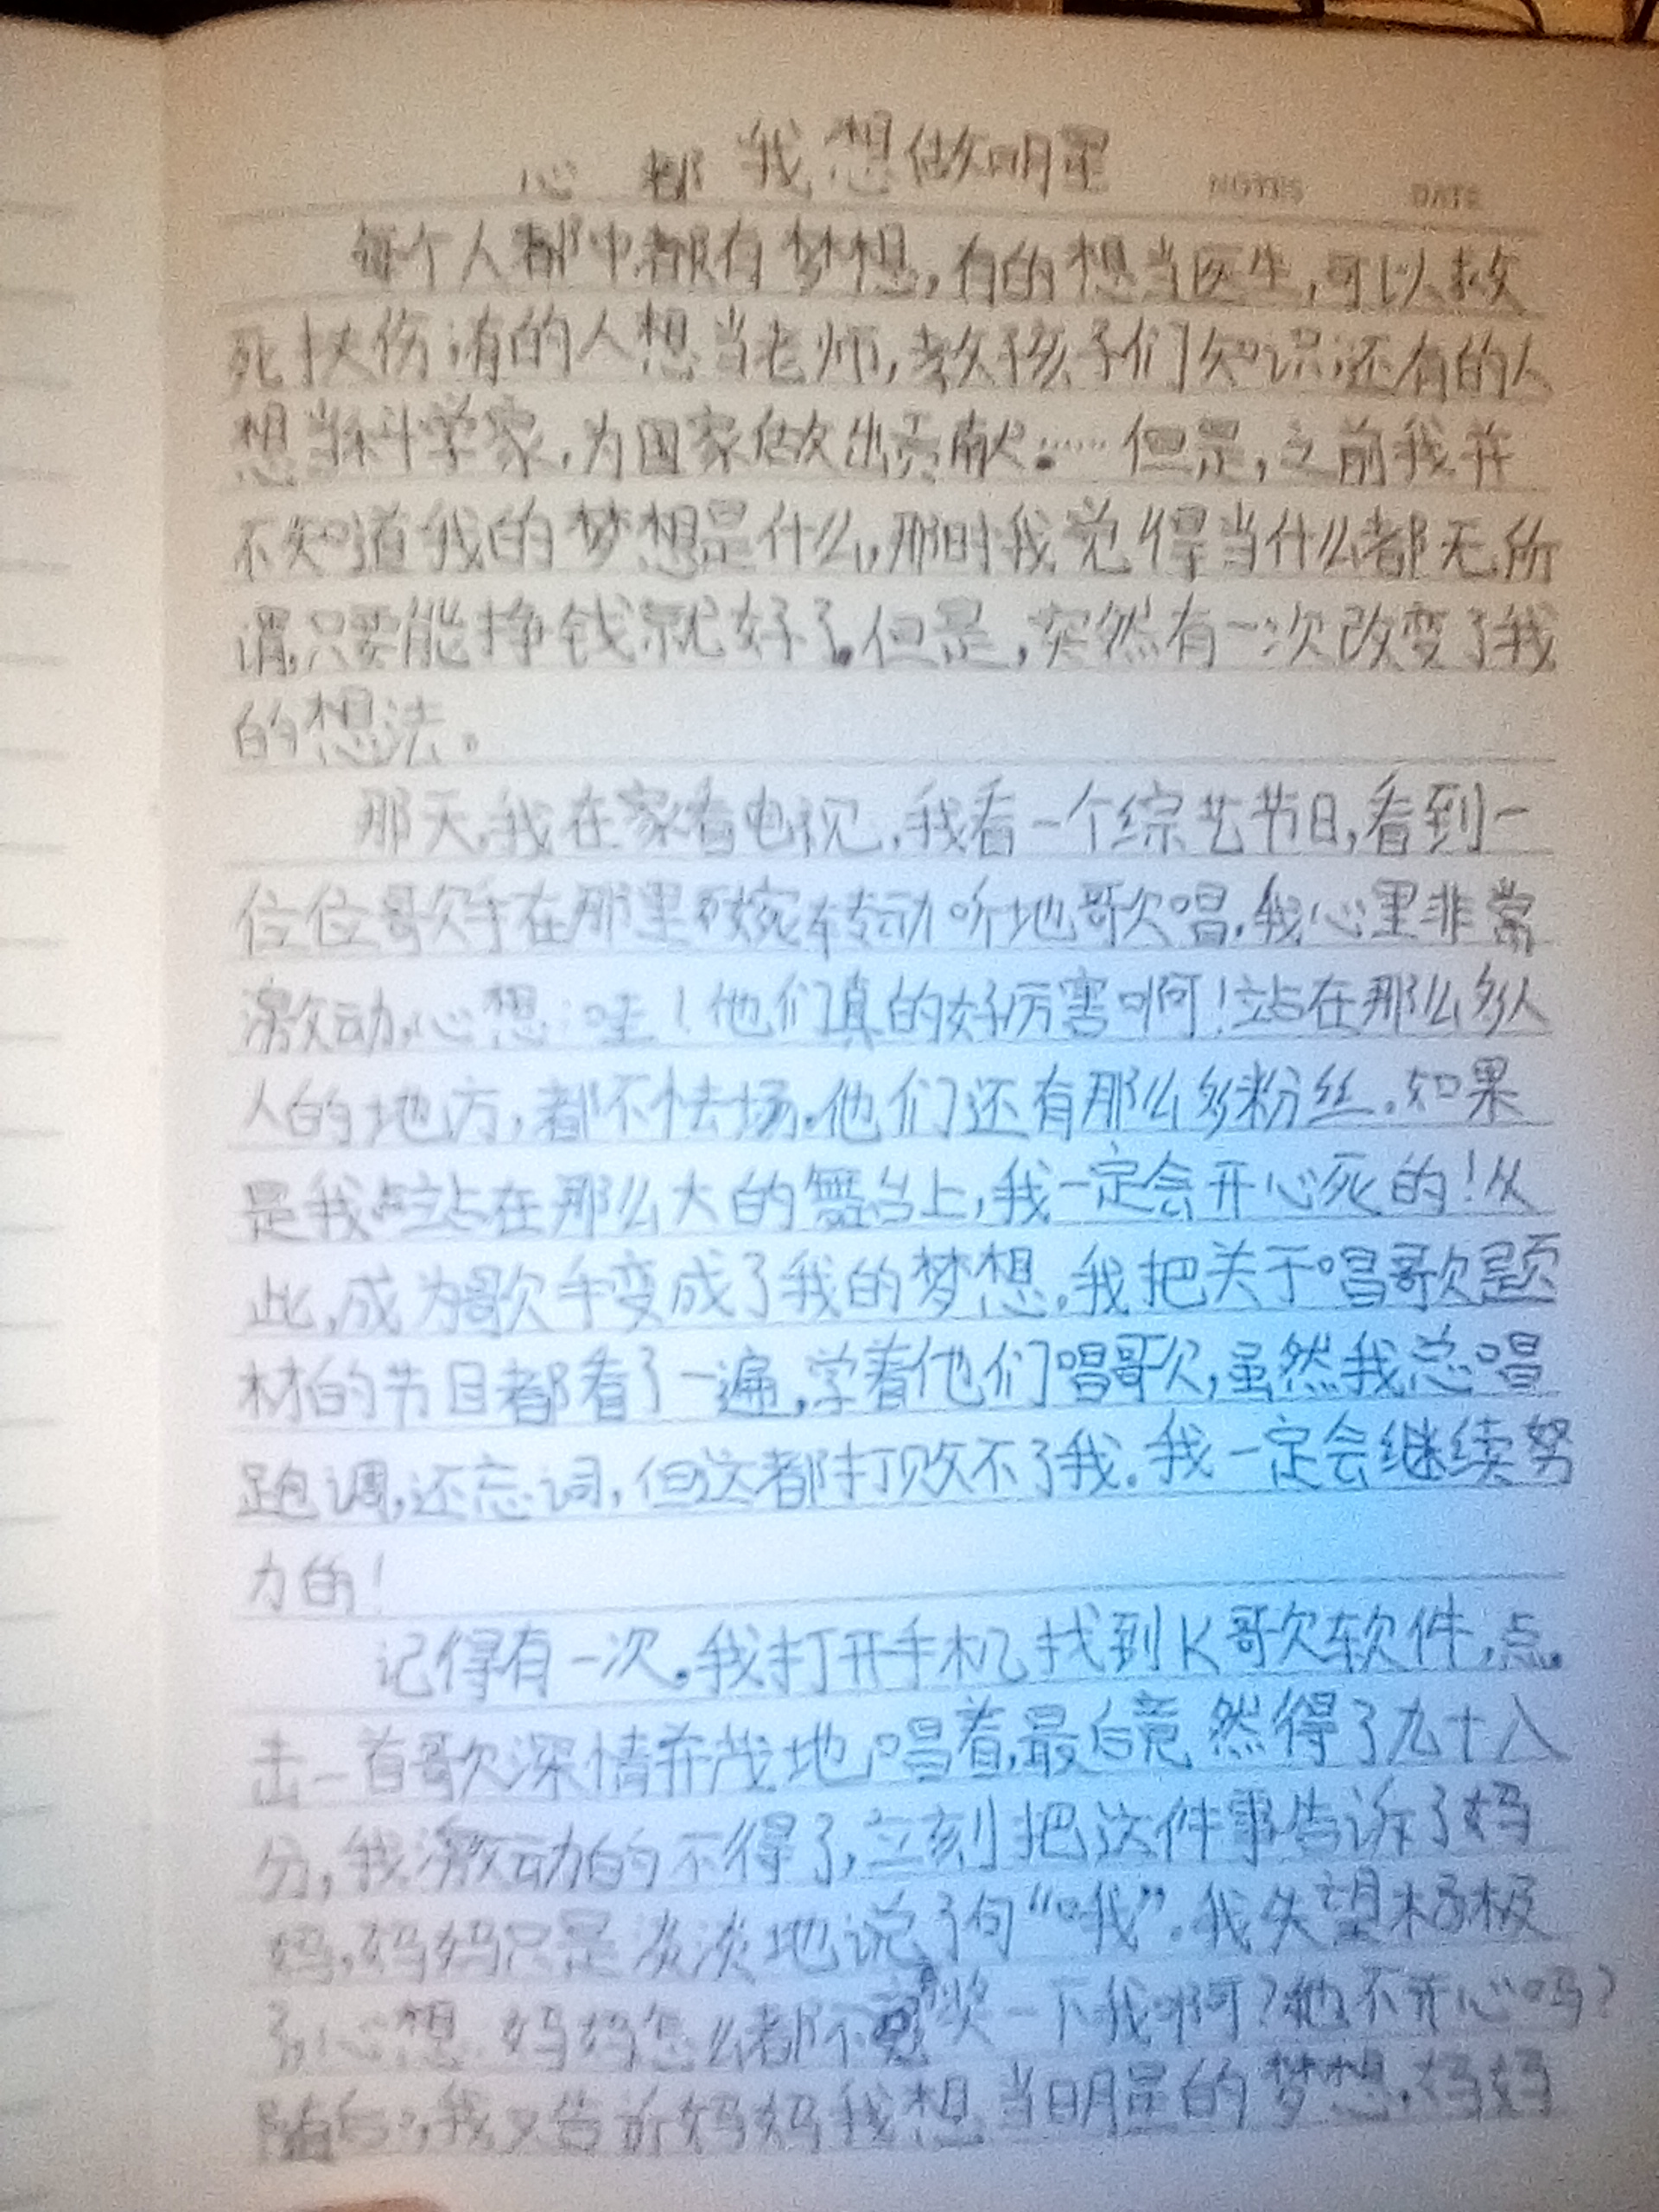 我想做明星
心 都
NOTES DATE
每个人都中都有梦想,有的想当医生,可以救
死扶伤;有的人想当老师,教孩子们知识;还有的人
想当科学家,为国家做出贡献……但是,之前我并
不知道我的梦想是什么,那时我觉得当什么都无所
谓,只要能挣钱就好了。但是,突然有一次改变了我
的想法。
那天,我在家看电视,我看一个综艺节目,看到一
位位歌手在那里婉转动听地歌唱,我心里非常
激动,心想:哇!他们真的好厉害啊!站在那么多人
人的地方,都不怯场。他们还有那么多粉丝。如果
是我站在那么大的舞台上,我一定会开心死的!从
此,成为歌手变成了我的梦想。我把关于唱歌题
材的节目都看了一遍,学着他们唱歌,虽然我总唱
跑调,还忘词,但这都打败不了我。我一定会继续努
力的!
记得有一次。我打开手机,找到K歌软件,点
击一首歌深情并茂地唱着,最后竟然得了九十八
分,我激动的不得了,立刻把这件事告诉了妈
妈,妈妈只是淡淡地说了句“哦”。我失望极
了,心想:妈妈怎么都不夸奖一下我啊?她不开心吗?
随后,我又告诉妈妈我想当明星的梦想,妈妈